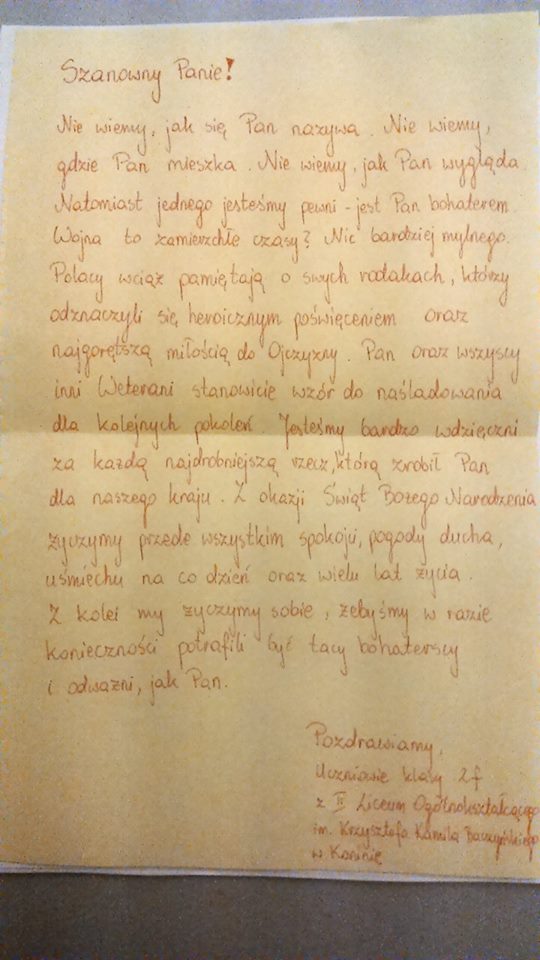 Szanowny Panie!
Nie wiemy, jak się Pan nazywa. Nie wiemy,
gdzie Pan mieszka. Nie wiemy, jak Pan wygląda.
Natomiast jednego jesteśmy pewni - jest Pan bohaterem.
Wojna to zamierzchłe czasy? Nic bardziej mylnego.
Polacy wciąż pamiętają o swych rodakach, którzy
odznaczyli się heroicznym poświęceniem oraz
najgorętszą miłością do Ojczyzny. Pan oraz wszyscy
inni Weterani stanowicie wzór do naśladowania
dla kolejnych pokoleń. Jesteśmy bardzo wdzięczni
za każdą najdrobniejszą rzecz, którą zrobił Pan
dla naszego kraju. Z okazji Świąt Bożego Narodzenia
życzymy przede wszystkim spokoju, pogody ducha,
uśmiechu na co dzień oraz wielu lat życia.
Z kolei my życzymy sobie, żebyśmy w razie
konieczności potrafili być tacy bohaterscy
i odważni, jak Pan.
Pozdrawiamy,
Uczniowie klasy 2f
z II Liceum Ogólnokształcącego
im. Krzysztofa Kamila Baczyńskiego
w Koninie